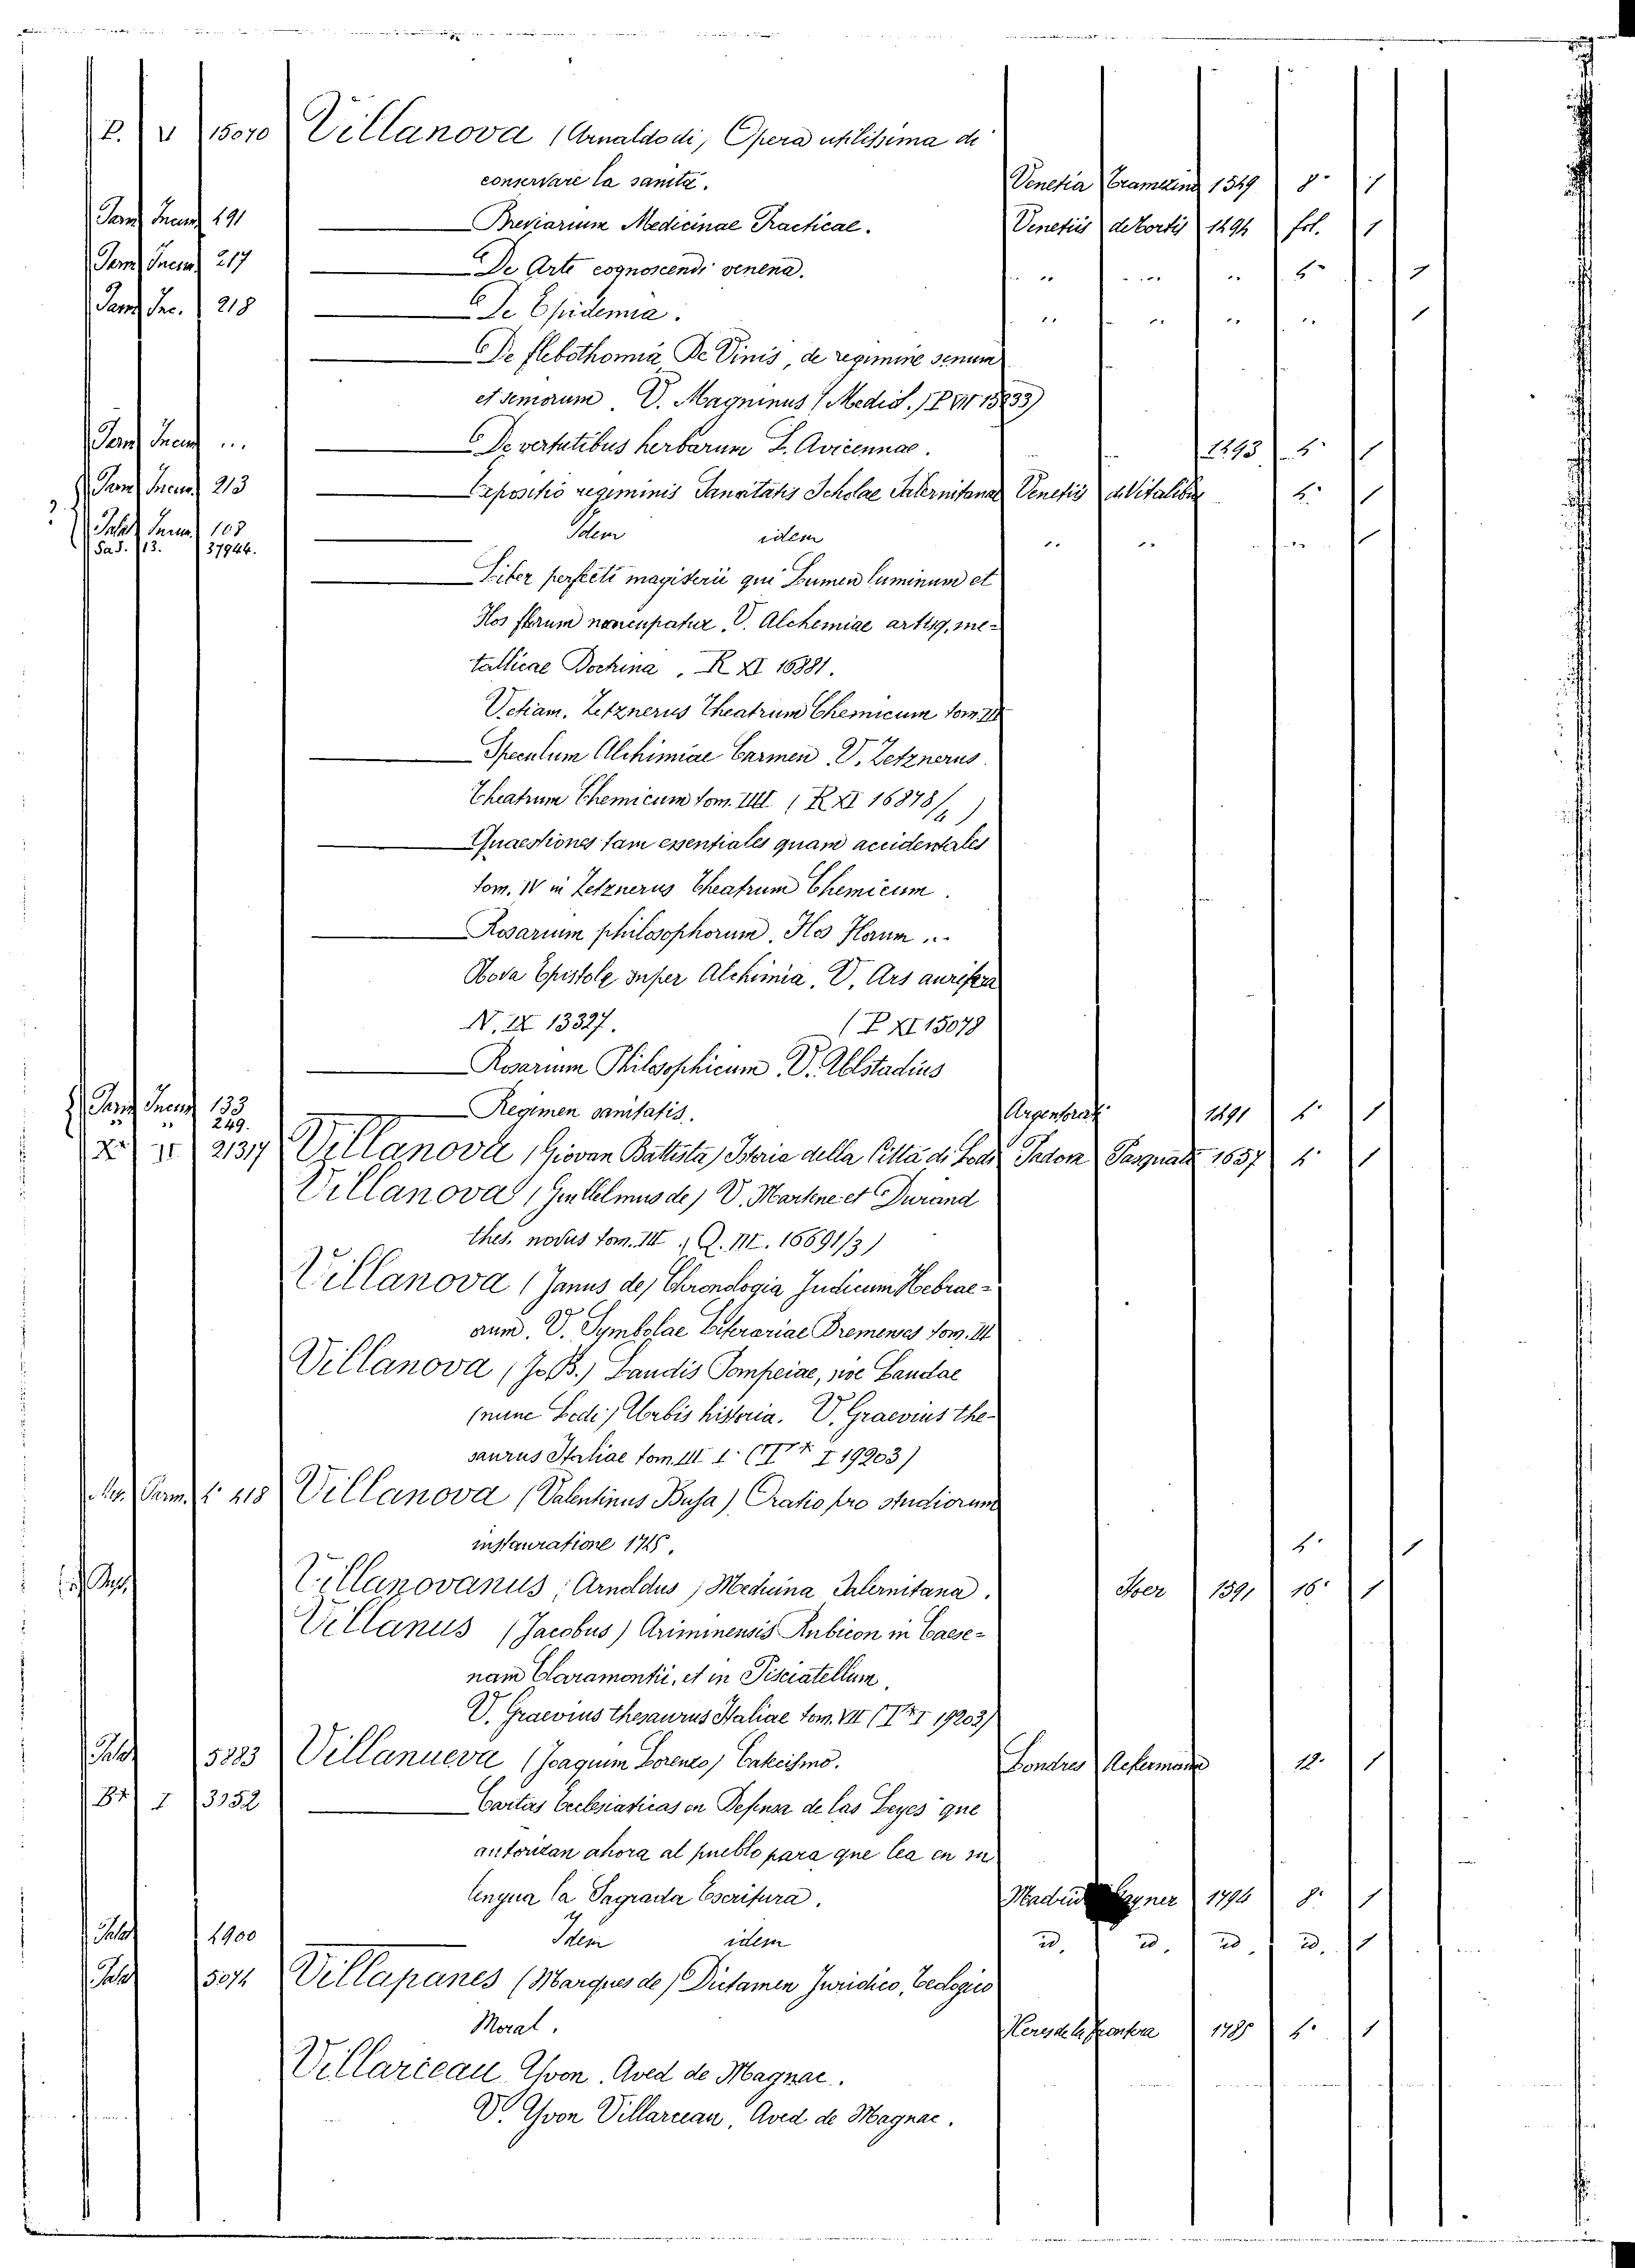 P. V 15010 Villanova (Arnaldo di) Opera utilissima di
conservare la sanità. Venetia Tramezino 1549 8° 1
Parm Incun 191 Breviarium Medicinae Practicae. Venetiis de Tortis 1494 fol. 1
Parm Incun 217 De Arte cognoscendi venena. " " " 4° 1
Parm Inc. 218 De Epidemia. " " " " 1
De flebothomia, De Vinis, de regimine senum
et seniorum. V. Magninus (Medid.)
Parm Incun ... De vertutibus herbarum L. Avicennae. 4° 1
Parm Incun 213 Expositio regiminis Sanitatis Scholae Salernitanae Venetiis de Vitalibus 4° 1
? Palat Incun 108 Idem idem " " " 1
Sa S. 13. 37944.
Liber perfecti magisterii qui Lumen luminum et
Flos florum noncupatur. V. Alchemiae artisq. me=
tallicae Doctrina. R XI 16881.
V. etiam. Zetznerus Theatrum Chemicum tom. III
Speculum Alchimiae Carmen. V. Zetznerus
Theatrum Chemicum tom. IIII (R XI 16878/4)
Quaestiones tam essentiales quam accidentales
tom. IV in Zetznerus Theatrum Chemicum.
Rosarium philosophorum. Flos Florum ...
Nova Epistole super Alchimia. V. Ars aurifera
N. IX 13327. (P XI 15078
Rosarium Philosophicum. V. Alstadius
Parm Incun 133 Regimen sanitatis. Argentorat 1491 4° 1
" " 249.
21317 Villanova (Giovan Battista) Istoria della Città di Lodi Padova Pasquati 1657 4° 1
Villanova (Guillelmus de) V. Martene et Durand
thes. novus tom. III (Q. III. 16691/3)
Villanova (Janus de) Chronologia Judicum Hebrae=
orum. V. Symbolae Literariae Bremenses tom. III
Villanova (Jo. B.) Laudis Pompeiae, sive Laudae
(nunc Lodi) Urbis historia. V. Graevius the=
saurus Italiae tom. III 1° I 19203)
Parm. 4° 418 Villanova (Valentinus Busa) Oratio pro studiorum
instauratione 4° 1
Villanovanus (Arnoldus) Medicina Salernitana. 1591 16° 1
Villanus (Jacobus) Ariminensis Rubicon in Caese=
nam Claramontii, et in Pisciatellum.
V. Graevius thesaurus Italiae tom. VII I 19203)
Palat 5883 Villanueva (Joaquim Lorenzo) Catecismo. Londres Ackermann 12° 1
I 3352 Cartas Ecclesiasticas en Defensa de las Leyes que
autorizan ahora al pueblo para que lea en su
lengua la Sagrada Escritura. Madrid 1794 8° 1
Palat 1900 Idem idem id. id. id. id. 1
Palat 5074 Villapanes (Marques de) Dictamen Juridico, Teologico
Moral. Xeres de la Frontera 1785 4° 1
Villarceau Yvon. Aved de Magnac.
V. Yvon Villarceau, Aved de Magnac.